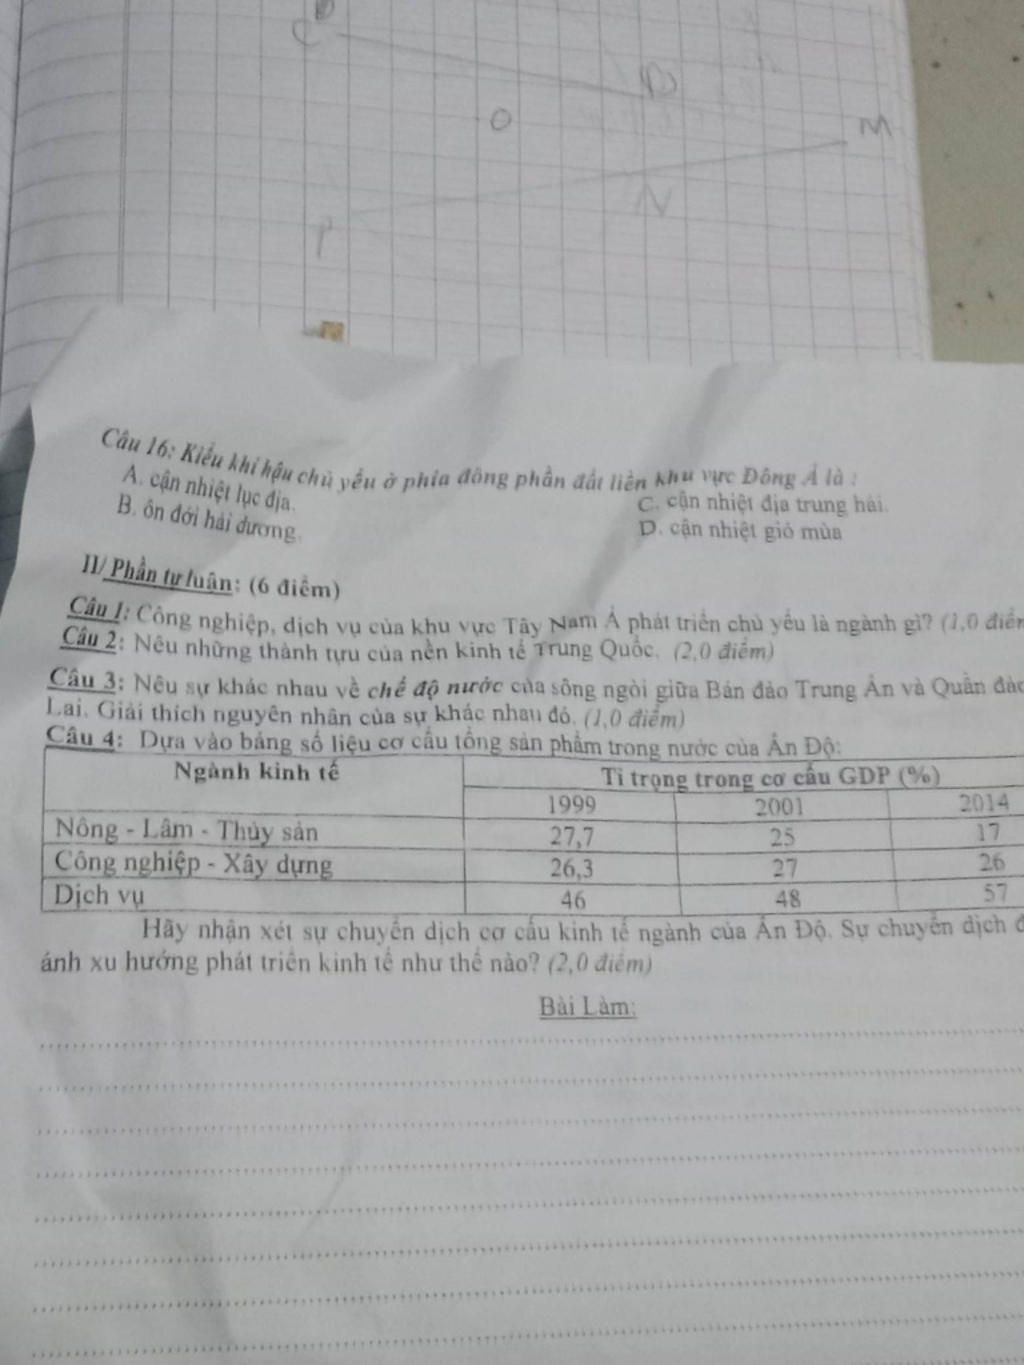 C
D
O
M
N
P
Câu 16: Kiểu khí hậu chủ yếu ở phía đông phần đất liền khu vực Đông Á là :
A. cận nhiệt lục địa.
C. cận nhiệt địa trung hải.
B. ôn đới hải dương.
D. cận nhiệt gió mùa
II/ Phần tự luận: (6 điểm)
Câu 1: Công nghiệp, dịch vụ của khu vực Tây Nam Á phát triển chủ yếu là ngành gì? (1,0 điểm
Câu 2: Nêu những thành tựu của nền kinh tế Trung Quốc. (2,0 điểm)
Câu 3: Nêu sự khác nhau về chế độ nước của sông ngòi giữa Bán đảo Trung Ấn và Quần đảo
Lai. Giải thích nguyên nhân của sự khác nhau đó. (1,0 điểm)
Câu 4: Dựa vào bảng số liệu cơ cấu tổng sản phẩm trong nước của Ấn Độ:
Ngành kinh tế Tỉ trọng trong cơ cấu GDP (%)
1999 2001 2014
Nông - Lâm - Thủy sản 27,7 25 17
Công nghiệp - Xây dựng 26,3 27 26
Dịch vụ 46 48 57
Hãy nhận xét sự chuyển dịch cơ cấu kinh tế ngành của Ấn Độ. Sự chuyển dịch
ánh xu hướng phát triển kinh tế như thế nào? (2,0 điểm)
Bài Làm: